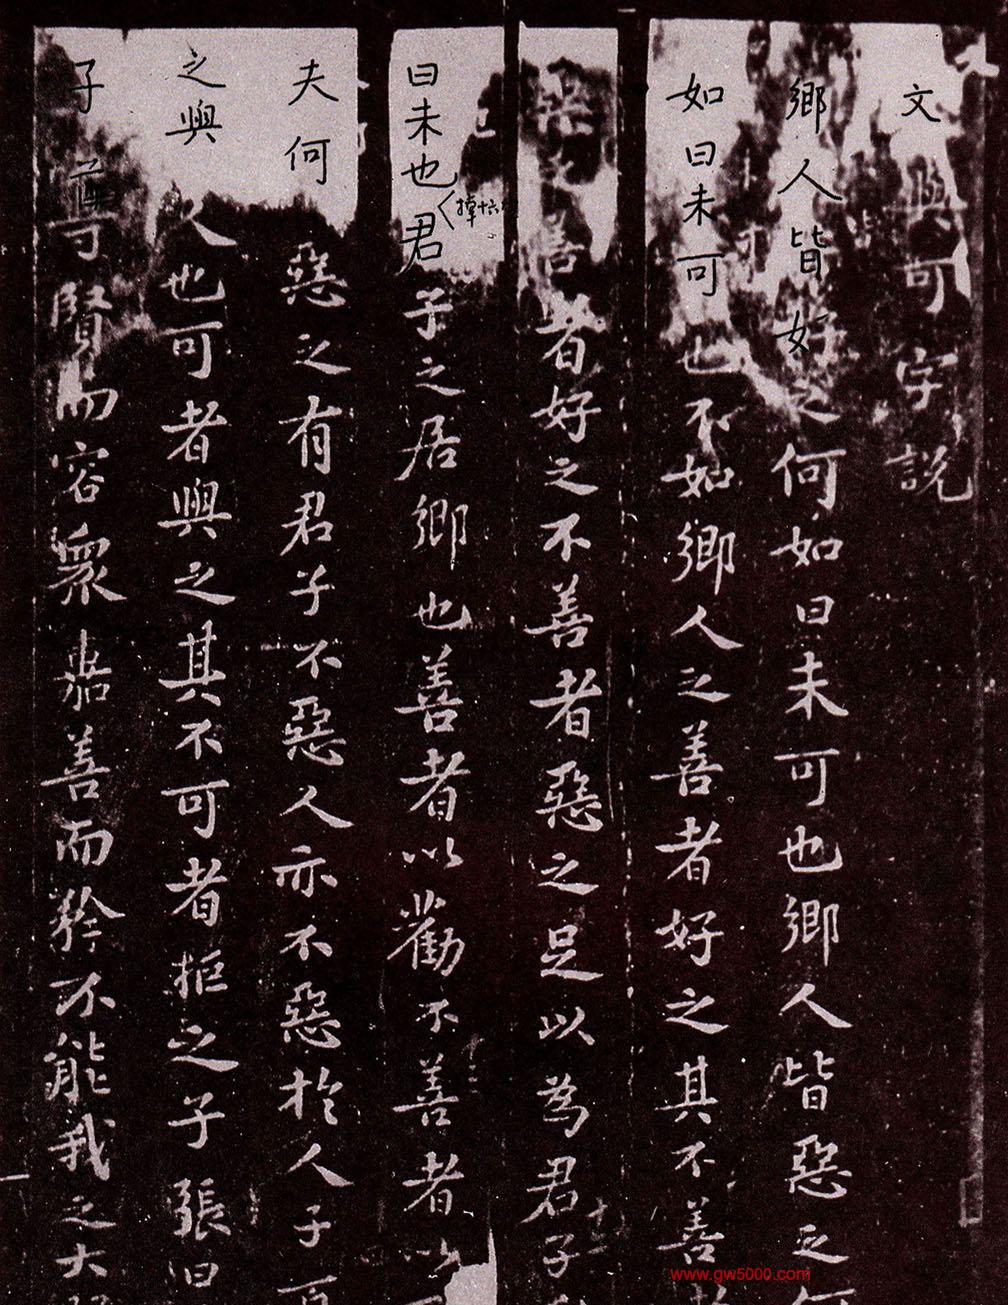 文與可字說
鄉人皆好之何如曰未可也鄉人皆惡之何
如曰未可也不如鄉人之善者好之其不善
善者好之不善者惡之足以為君子
曰未也君子之居鄉也善者以勸不善者以
夫何惡之有君子不惡人亦不惡於人子
之與人也可者與之其不可者拒之子張曰
子尊賢而容眾嘉善而矜不能我之大
www.gw5000.com